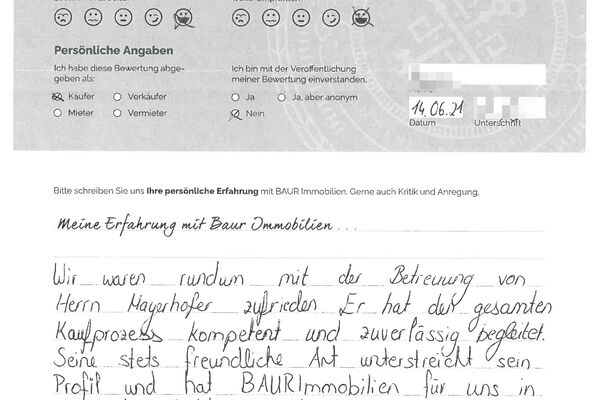 Persönliche Angaben
Ich habe diese Bewertung abge-
geben als:
Käufer
Verkäufer
Mieter
Vermieter
Ich bin mit der Veröffentlichung
meiner Bewertung einverstanden.
Ja
Ja, aber anonym
Nein
14.06.21
Datum
Unterschrift
Bitte schreiben Sie uns Ihre persönliche Erfahrung mit BAUR Immobilien. Gerne auch Kritik und Anregung.
Meine Erfahrung mit Baur Immobilien...
Wir waren rundum mit der Betreuung von
Herrn Mayerhofer zufrieden. Er hat den gesamten
Kaufprozess kompetent und zuverlässig begleitet.
Seine stets freundliche Art unterstreicht sein
Profil und hat BAUR Immobilien für uns in